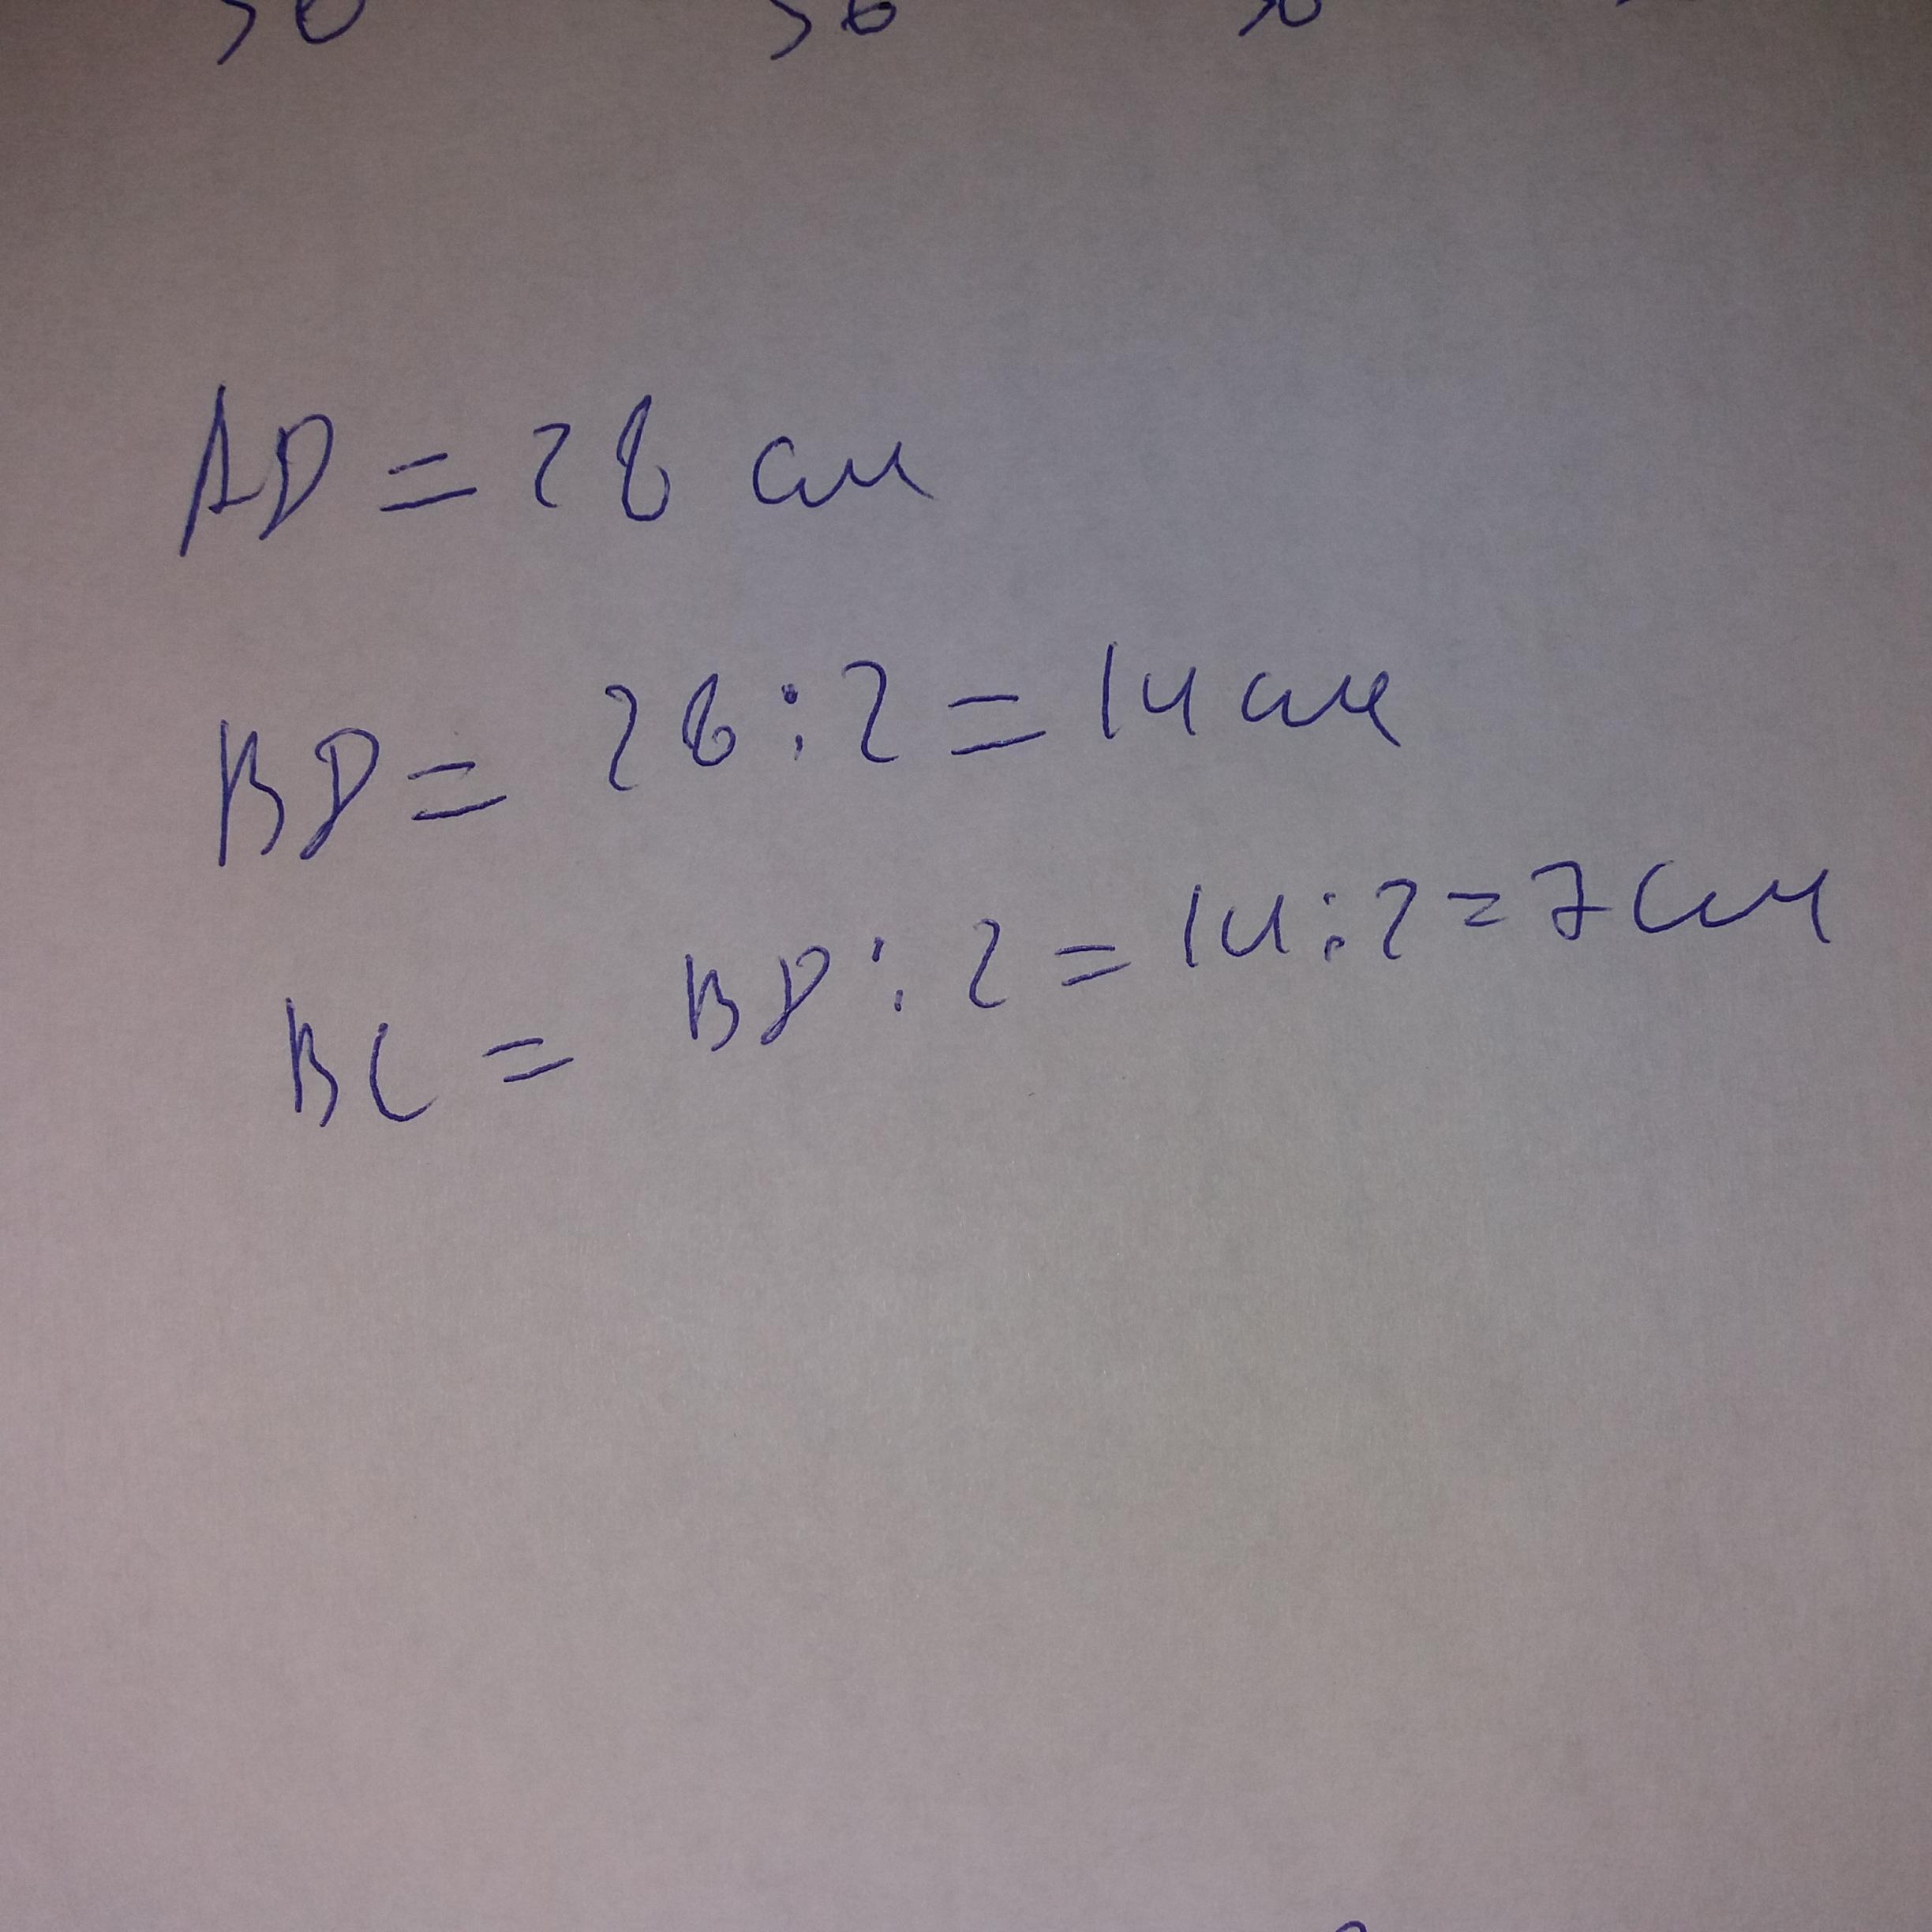 AD = 28 см
BD = 28 : 2 = 14 см
BC = BD : 2 = 14 : 2 = 7 см